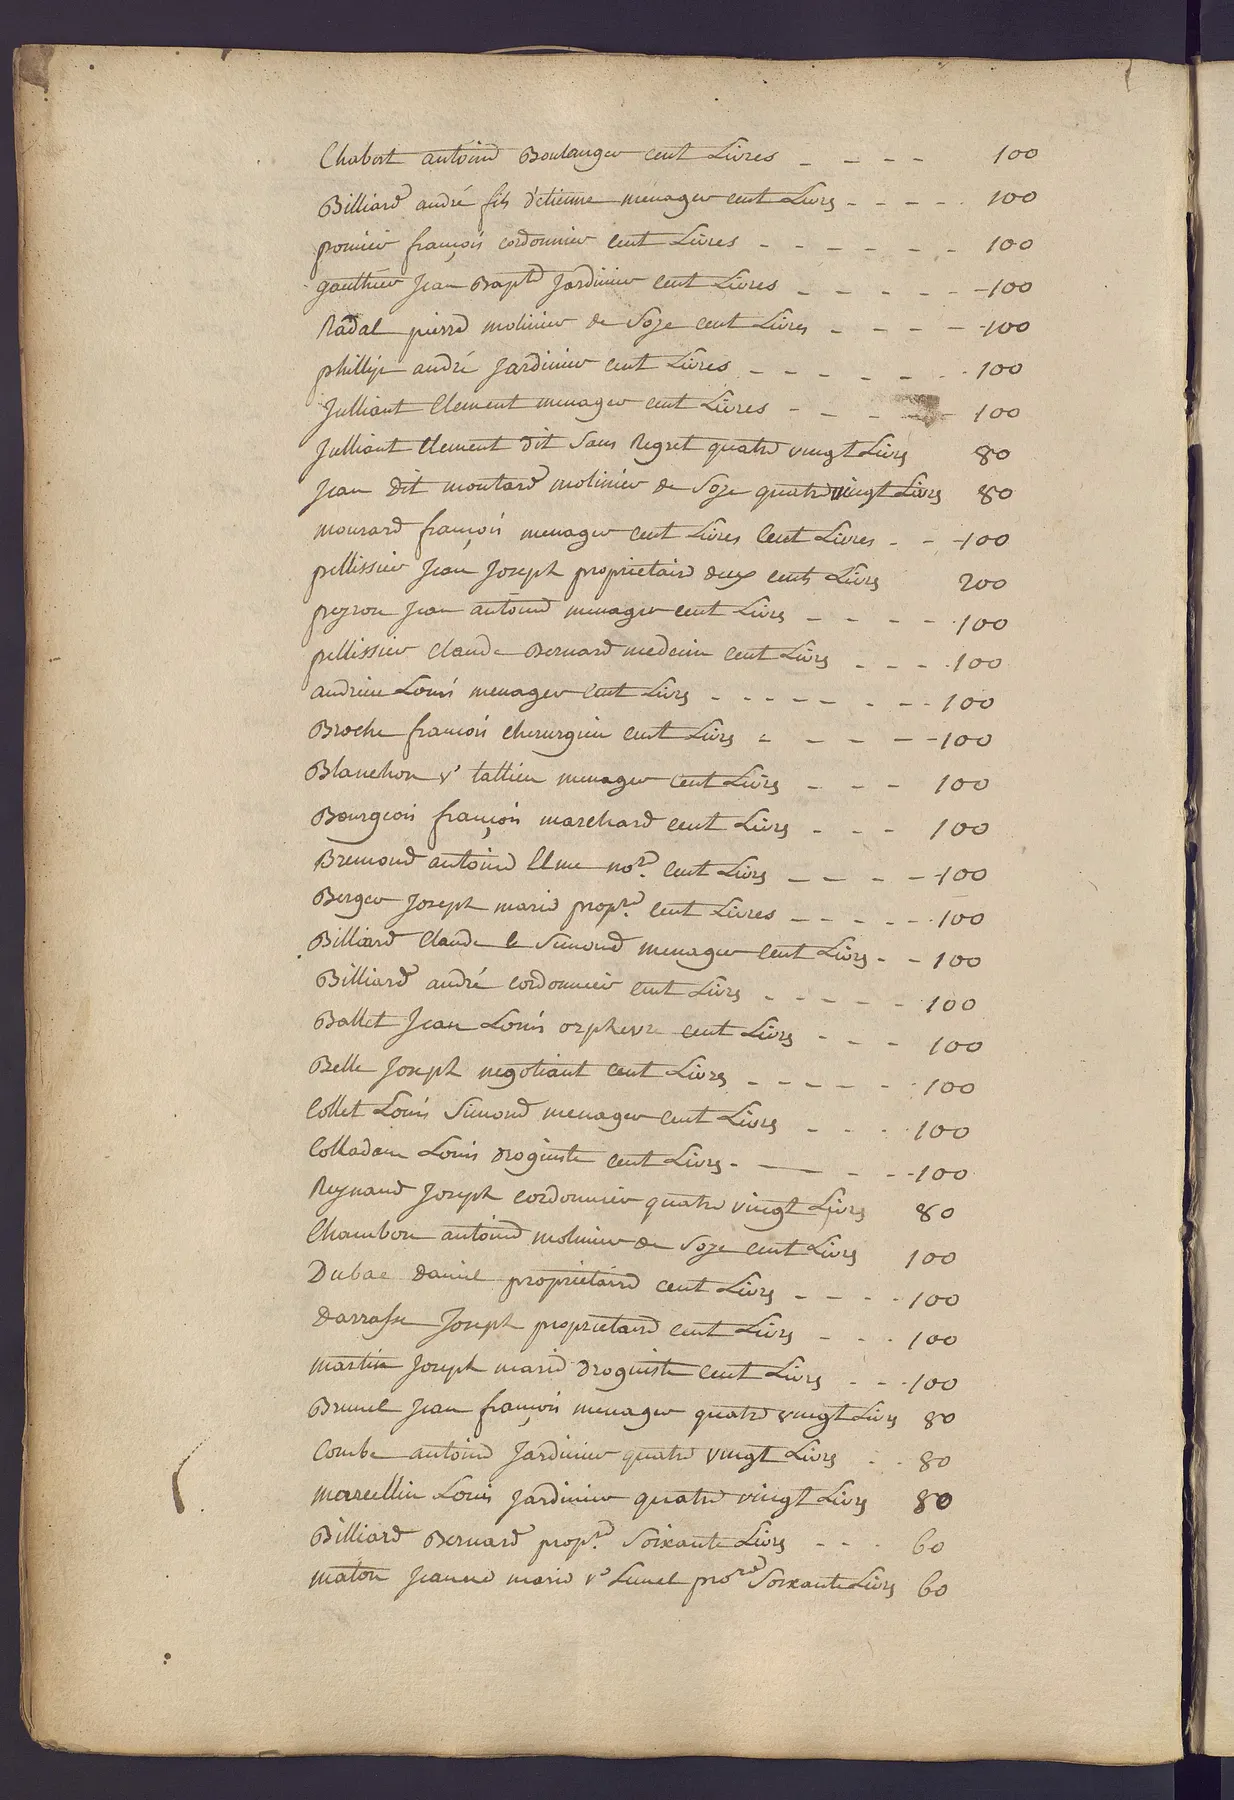 Chabert antoine Boulanger cent Livres - - - - 100
Billiard andré fils d'etienne menager cent Livres - - - - 100
pomier françois cordonnier cent Livres - - - - - - 100
gauthier Jean Bapte Jardinier cent Livres - - - - - 100
Nadal pierre molinier de Soye cent Livres - - - - 100
phillip andré Jardinier cent Livres - - - - - - 100
Julliant Clement menager cent Livres - - - - - 100
Julliant Clement dit Sans Regret quatre vingt Livres 80
Jean dit moutard molinier de Soye quatre vingt Livres 80
mourard françois menager cent Livres Cent Livres - - 100
pellissier Jean Joseph proprietaire deux cents Livres 200
peyron Jean antoine menager cent Livres - - - - 100
pellissier Claude Bernard medecin cent Livres - - - - 100
andrieu Louis menager cent Livres - - - - - - - 100
Broche françois chirurgien cent Livres - - - - - 100
Blanchon ve tallien menager cent Livres - - - 100
Bourgeois françois marchand cent Livres - - - 100
Bremond antoine nore. cent Livres - - - - 100
Berger Joseph marie propre. cent Livres - - - - - 100
Billiard Claude a Simond menager cent Livres - - 100
Billiard andré cordonnier cent Livres - - - - - 100
Ballet Jean Louis orphevre cent Livres - - - 100
Belle Joseph negotiant cent Livres - - - - - 100
Collet Louis Simond menager cent Livres - - - 100
Colladon Louis droguiste cent Livres - - - - 100
Reynaud Joseph cordonnier quatre vingt Livres 80
Chambon antoine molinier de Soye cent Livres 100
Dubac daniel proprietaire cent Livres - - - - 100
Darrasse Joseph proprietaire cent Livres - - - 100
martin Joseph marie droguiste cent Livres - - - 100
Brunel Jean françois menager quatre vingt Livres 80
Combe antoine Jardinier quatre vingt Livres - - 80
marcellin Louis Jardinier quatre vingt Livres 80
Billiard Bernard propre. Soixante Livres - - - 60
maton Jeanne marie ve Lunel prore Soixante Livres 60